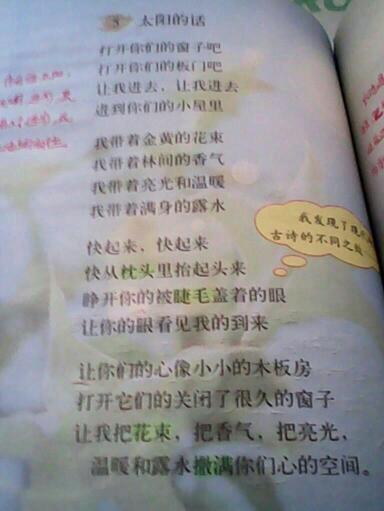 8 太阳的话
打开你们的窗子吧
打开你们的板门吧
让我进去，让我进去
进到你们的小屋里
我带着金黄的花束
我带着林间的香气
我带着亮光和温暖
我带着满身的露水
快起来，快起来
快从枕头里抬起头来
睁开你的被睫毛盖着的眼
让你的眼看见我的到来
让你们的心像小小的木板房
打开它们的关闭了很久的窗子
让我把花束，把香气，把亮光，
温暖和露水撒满你们心的空间。
我发现了现
古诗的不同之处